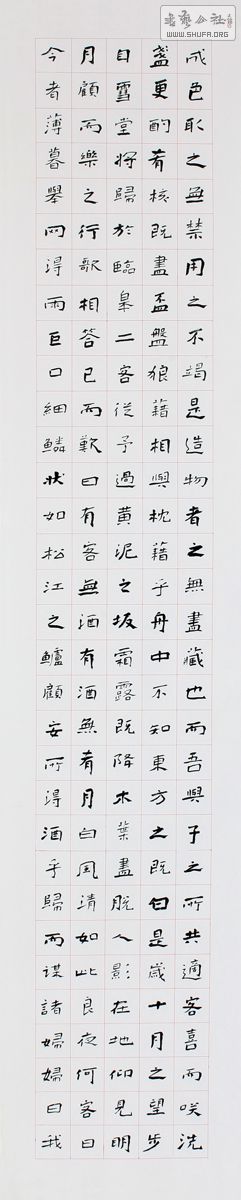 成色取之無禁用之不竭是造物者之無盡藏也而吾與子之所共適客喜而咲洗
盞更酌肴核既盡盃盤狼藉相與枕藉乎舟中不知東方之既白是歲十月之望步
自雪堂將歸於臨皋二客從予過黃泥之坂霜露既降木葉盡脫人影在地仰見明
月顧而樂之行歌相答已而歎曰有客無酒有酒無肴月白風清如此良夜何客曰
今者薄暮舉网淂雨巨口細鱗狀如松江之鱸顧安所淂酒乎歸而謀諸婦婦曰我
WWW.SHUFA.ORG